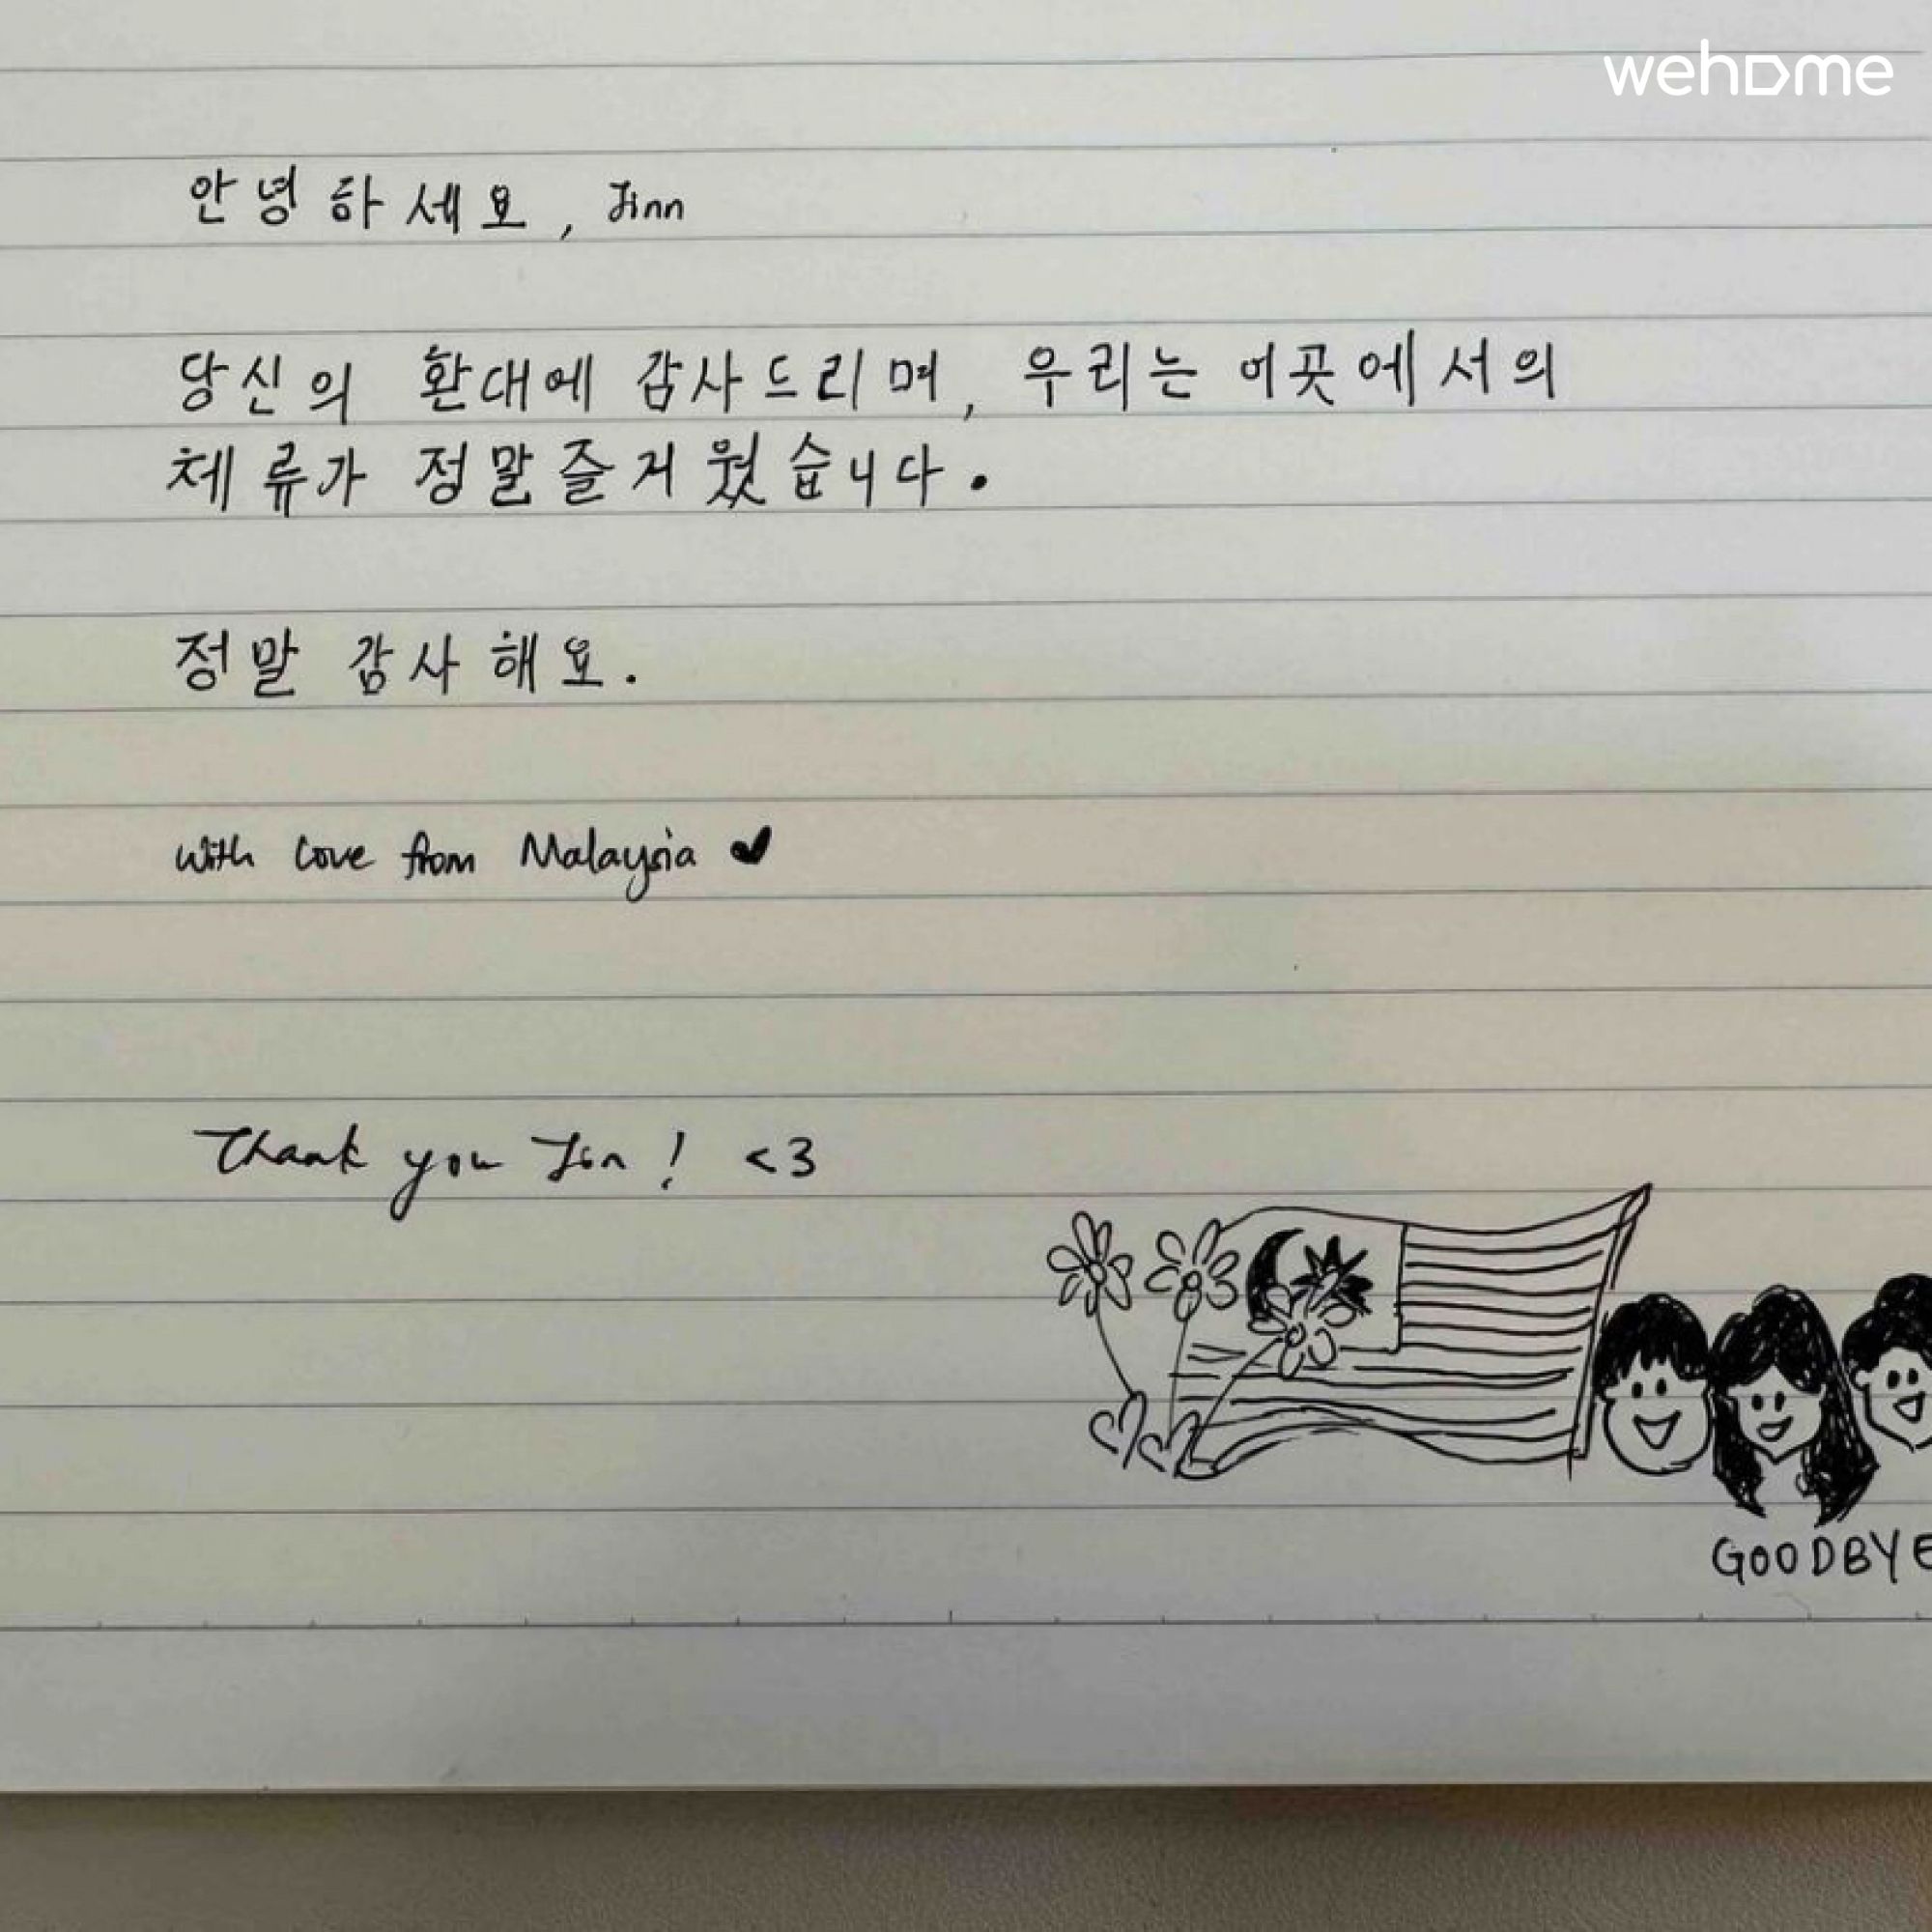 wehome
안녕하세요, Jinn
당신의 환대에 감사드리며, 우리는 이곳에서의
체류가 정말 즐거웠습니다.
정말 감사해요.
with love from Malaysia ♥
Thank you Jin! <3
GOODBYE